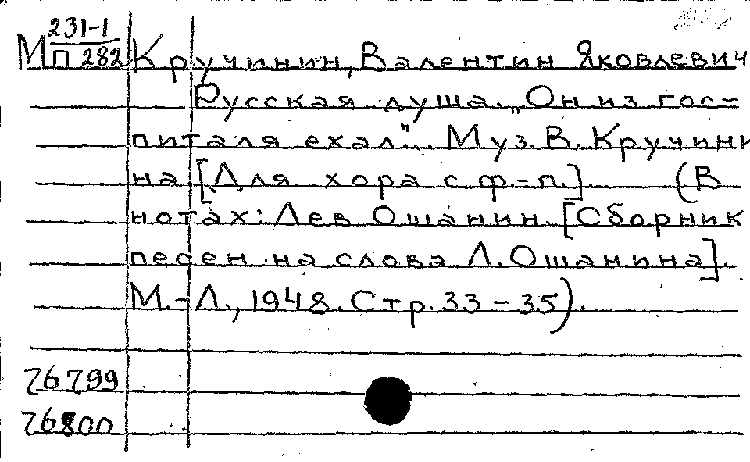 М 231-1 Кручинин, Валентин Яковлевич
П 282
Русская душа. „Он из гос-
питаля ехал". Муз. В. Кручини
на [Для хора с ф.-п.] (В
нотах: Лев Ошанин [Сборник
песен на слова Л. Ошанина].
М.-Л., 1948. Стр. 33-35).
76799
76800